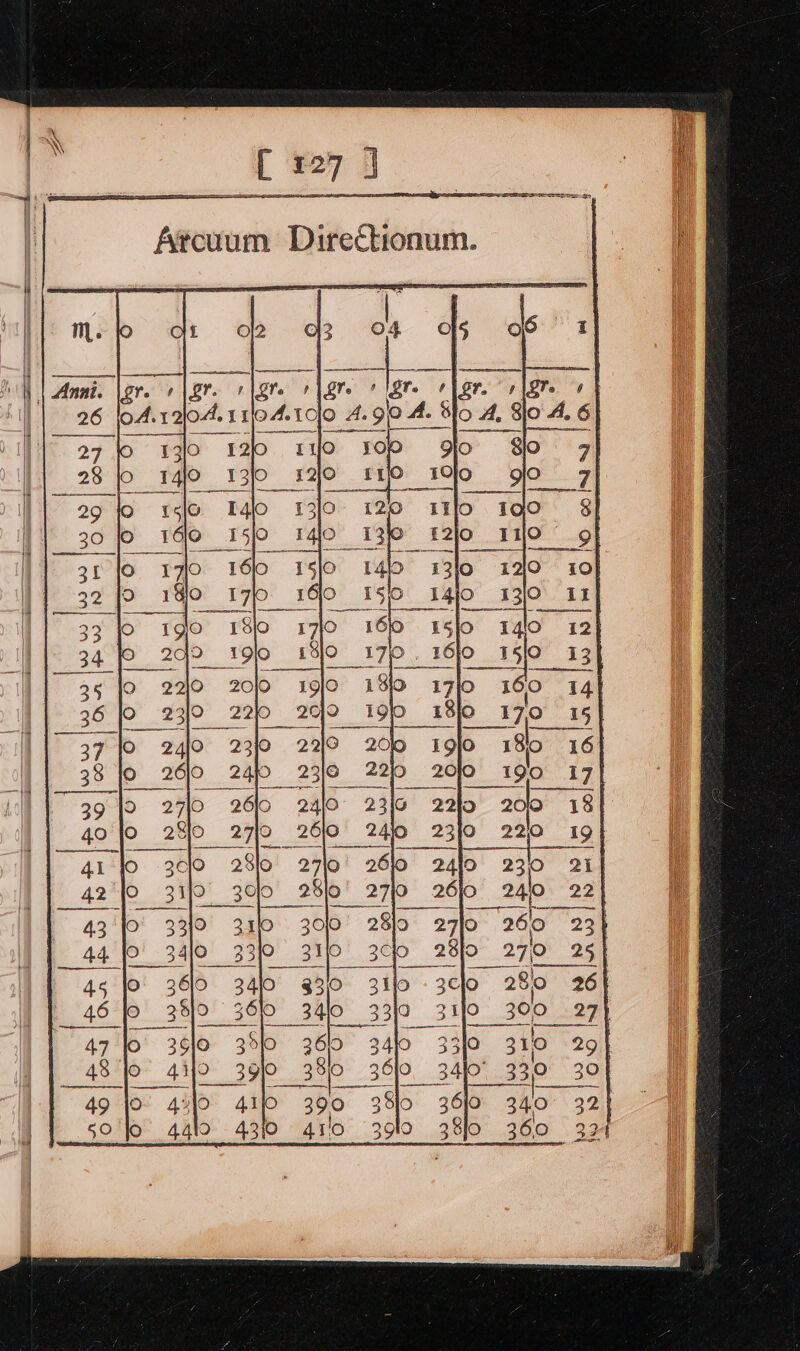 [ 127 ]
Arcuum Directionum.
♏. 0 0 1 0 2 0 3 0 4 0 5 0 6 1
Anni. gr. ' gr. ' gr. ' gr. ' gr. ' gr. ' gr. '
26 0 A. 12 0 A. 11 0 A. 10 0 A. 9 0 A. 8 0 A. 8 0 A. 6
27 0 13 0 12 0 11 0 10 0 9 0 8 0 7
28 0 14 0 13 0 12 0 11 0 10 0 9 0 7
29 0 15 0 14 0 13 0 12 0 11 0 10 0 8
30 0 16 0 15 0 14 0 13 0 12 0 11 0 9
31 0 17 0 16 0 15 0 14 0 13 0 12 0 10
32 0 18 0 17 0 16 0 15 0 14 0 13 0 11
33 0 19 0 18 0 17 0 16 0 15 0 14 0 12
34 0 20 0 19 0 18 0 17 0 16 0 15 0 13
35 0 22 0 20 0 19 0 18 0 17 0 16 0 14
36 0 23 0 22 0 20 0 19 0 18 0 17 0 15
37 0 24 0 23 0 22 0 20 0 19 0 18 0 16
38 0 26 0 24 0 23 0 22 0 20 0 19 0 17
39 0 27 0 26 0 24 0 23 0 22 0 20 0 18
40 0 28 0 27 0 26 0 24 0 23 0 22 0 19
41 0 30 0 28 0 27 0 26 0 24 0 23 0 21
42 0 31 0 30 0 28 0 27 0 26 0 24 0 22
43 0 33 0 31 0 30 0 28 0 27 0 26 0 23
44 0 34 0 33 0 31 0 30 0 28 0 27 0 25
45 0 36 0 34 0 33 0 31 0 30 0 28 0 26
46 0 38 0 36 0 34 0 33 0 31 0 30 0 27
47 0 39 0 38 0 36 0 34 0 33 0 31 0 29
48 0 41 0 39 0 38 0 36 0 34 0 33 0 30
49 0 43 0 41 0 39 0 38 0 36 0 34 0 32
50 0 44 0 43 0 41 0 39 0 38 0 36 0 32